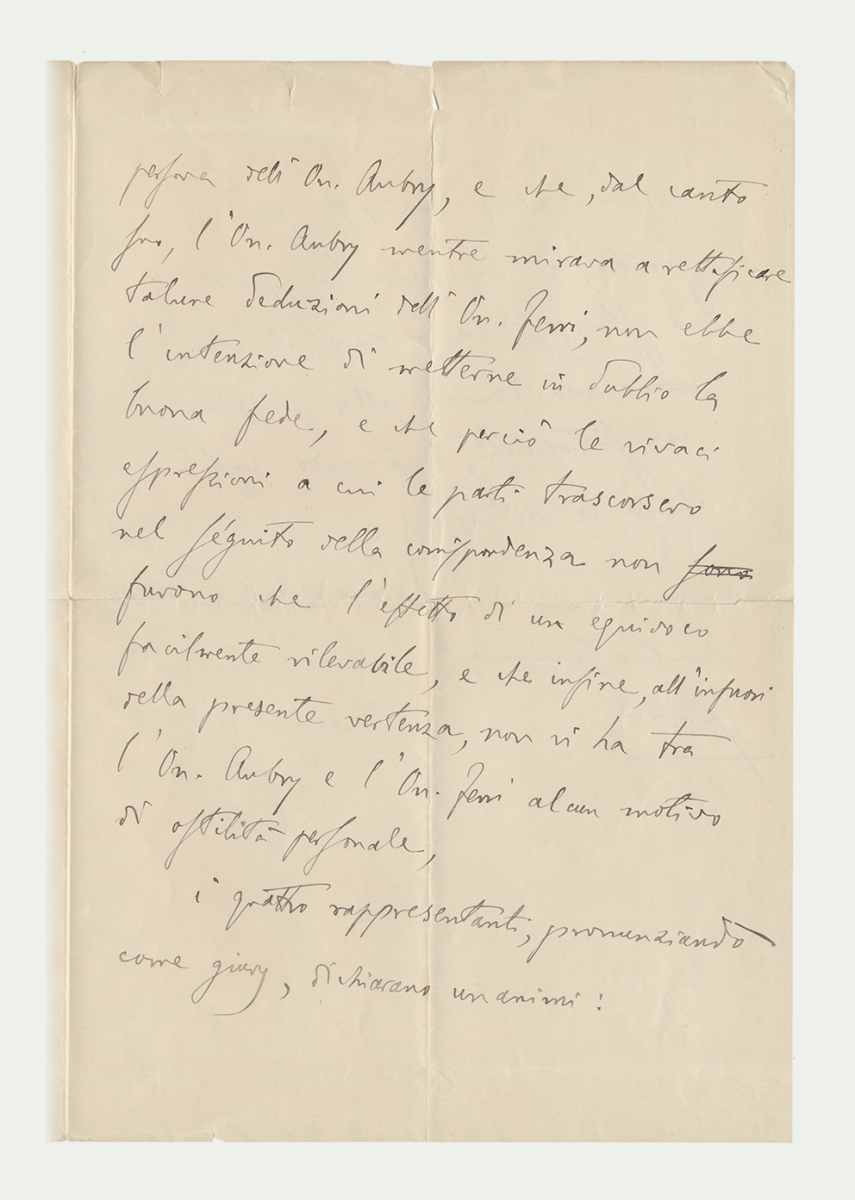 persona dell'On. Aubry, e che, dal canto
suo, l'On. Aubry mentre mirava a rettificare
talune deduzioni dell'On. Ferri, non ebbe
l'intenzione di metterne in dubbio la
buona fede, e che perciò le vivaci
espressioni a cui le parti trascorsero
nel séguito della corrispondenza non sono
furono che l'effetto di un equivoco
facilmente rilevabile, e che infine, all'infuori
della presente vertenza, non vi ha tra
l'On. Aubry e l'On. Ferri alcun motivo
di ostilità personale,
i quattro rappresentanti, pronunziando
come giury, dichiarano unanimi: